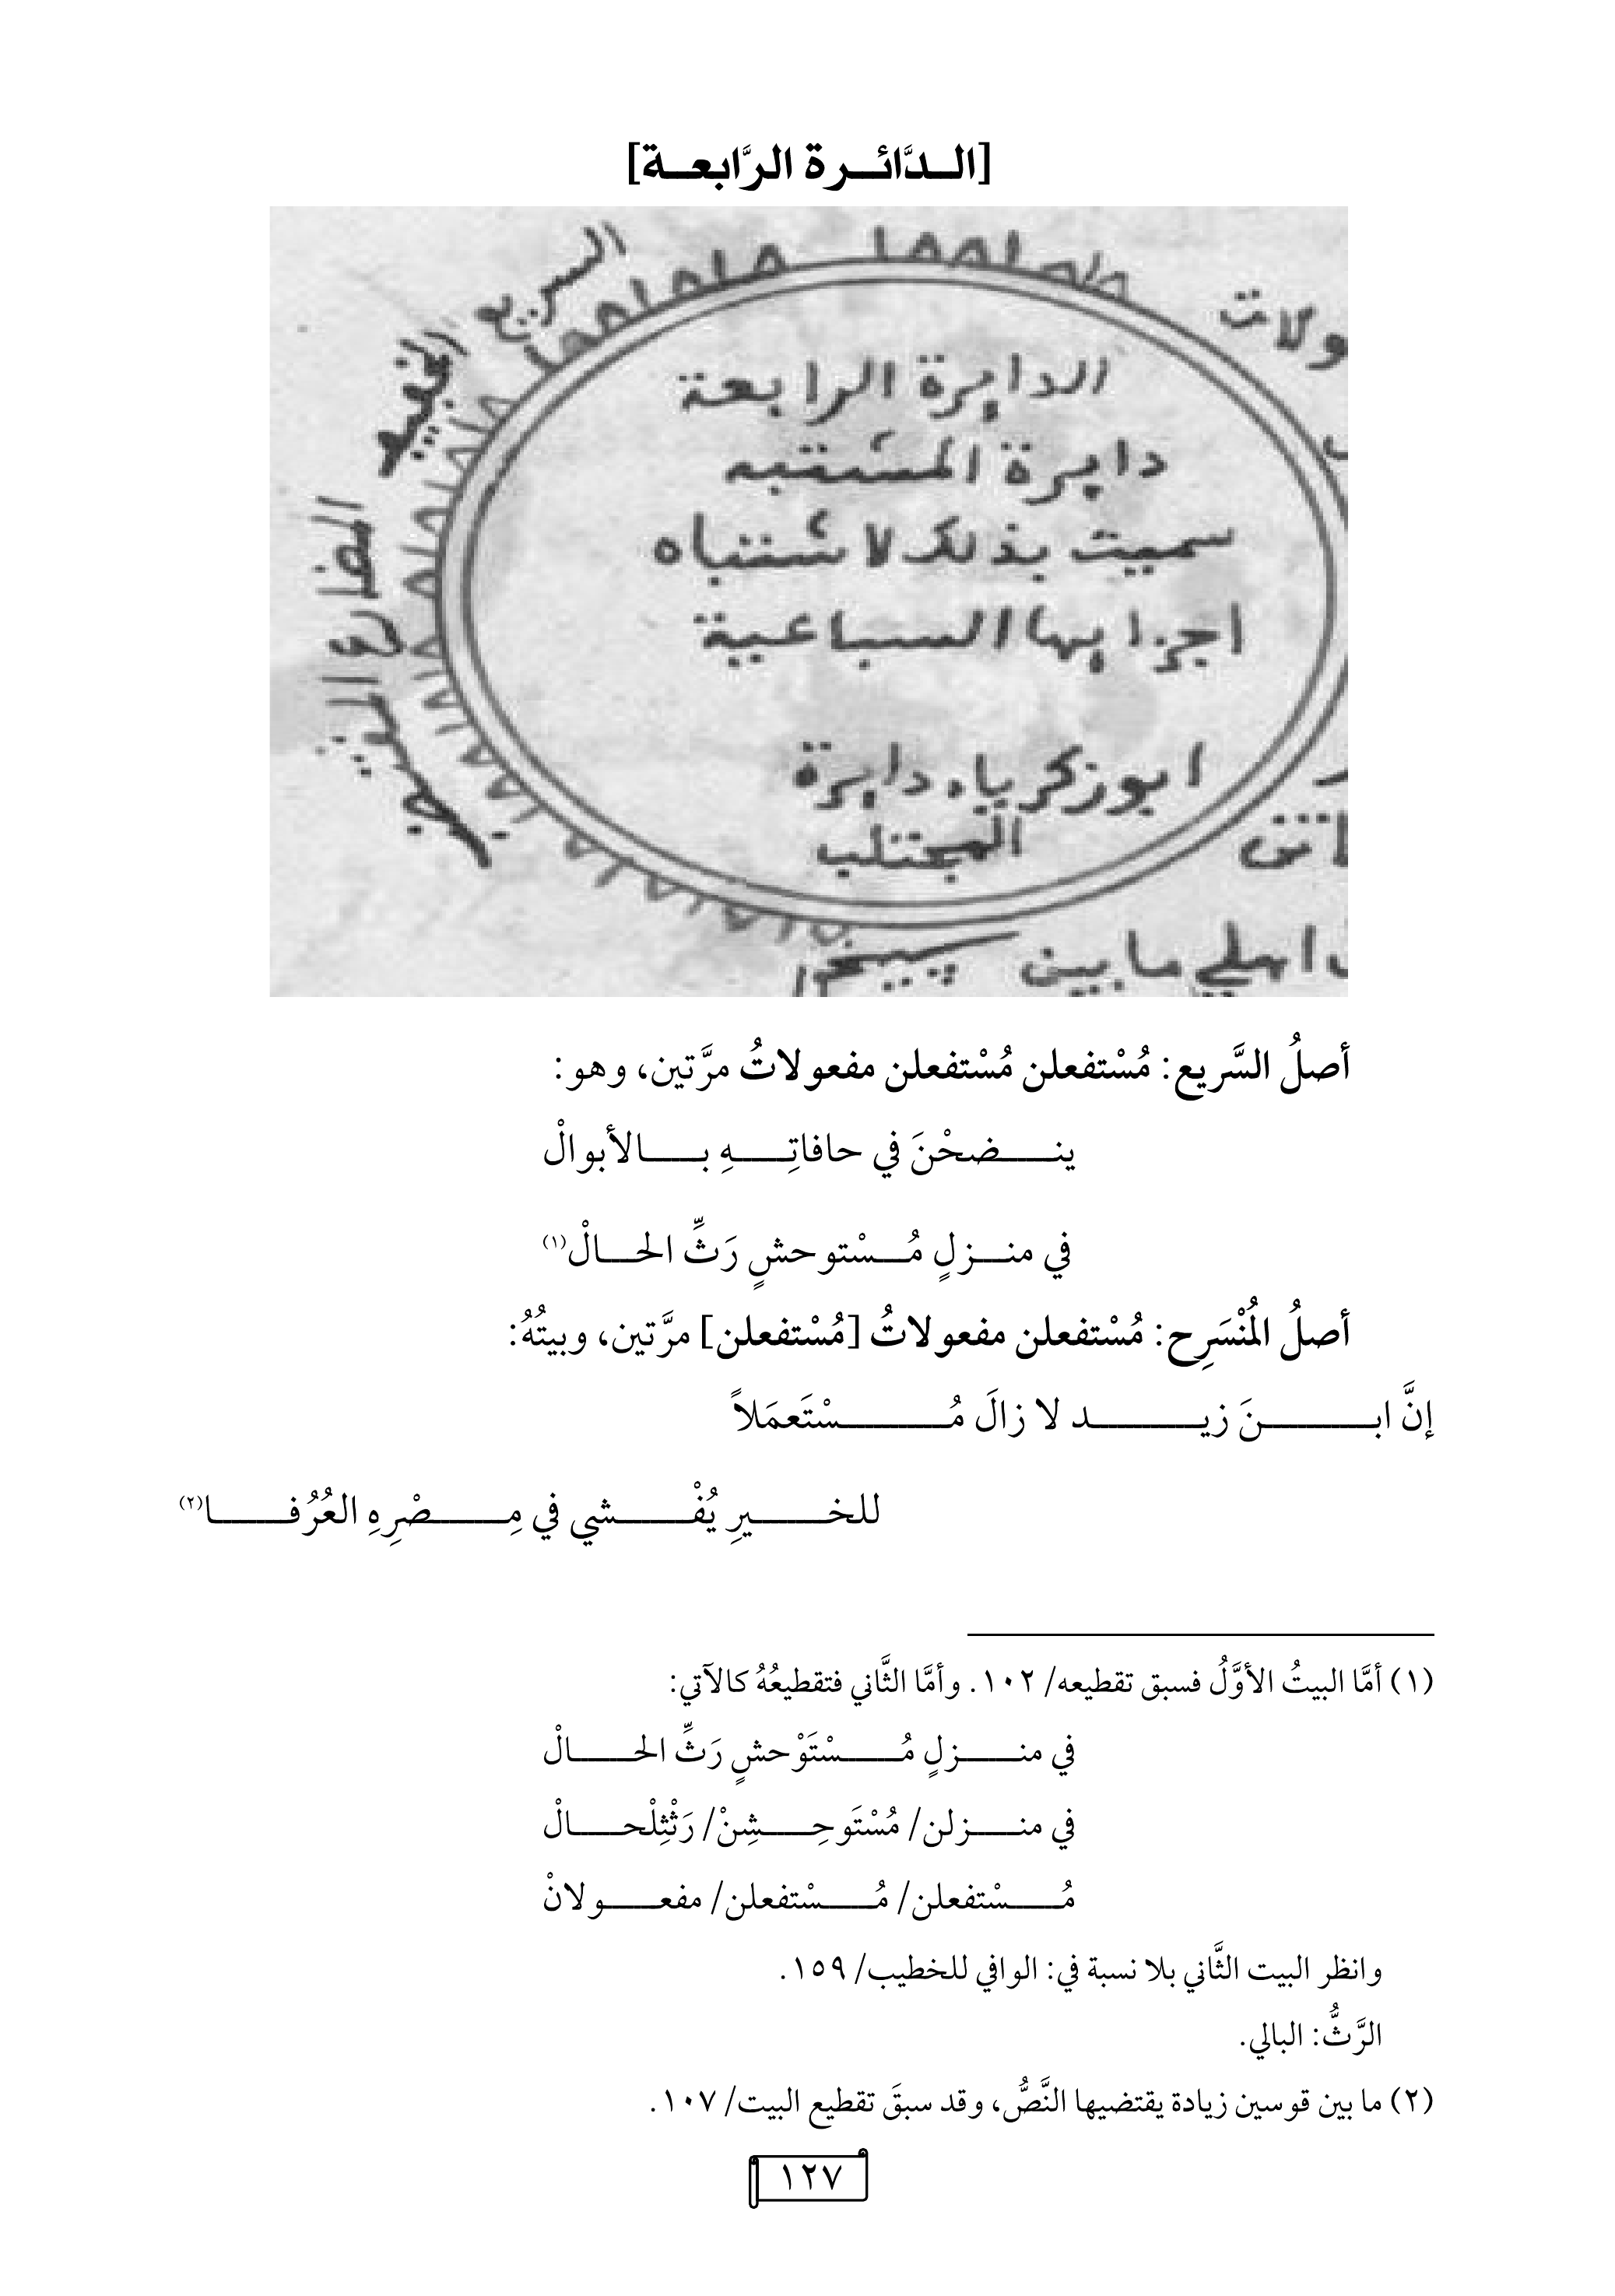 [الـدَّائـرة الرَّابعـة]
السريع
الخفيف
المضارع
ولات
الدايرة الرابعة
دايرة المشتبه
سميت بذلك لاشتباه
اجزايها السباعية
ابو زكرياء دايرة
المجتلب
مابين
أصلُ السَّريع: مُسْتفعلن مُسْتفعلن مفعولاتُ مرَّتين، وهو:
ينـضحْنَ في حافاتِـهِ بـالأبوالْ
في منـزلٍ مُـسْتوحشٍ رَثِّ الحـالْ(١)
أصلُ المُنْسَرِح: مُسْتفعلن مفعولاتُ [مُسْتفعلن] مرَّتين، وبيتُهُ:
إنَّ ابـنَ زيـد لا زالَ مُـسْتَعمَلاً
للخـيرِ يُفْـشي في مِـصْرِهِ العُرُفـا(٢)
(١) أمَّا البيتُ الأوَّلُ فسبق تقطيعه/ ١٠٢. وأمَّا الثَّاني فتقطيعُهُ كالآتي:
في منـزلٍ مُـسْتَوْحشٍ رَثِّ الحـالْ
في منـزلن/ مُسْتَوحِـشِنْ/ رَثْثِلْحـالْ
مُـسْتفعلن/ مُـسْتفعلن/ مفعـولانْ
وانظر البيت الثَّاني بلا نسبة في: الوافي للخطيب/ ١٥٩.
الرَّثُّ: البالي.
(٢) ما بين قوسين زيادة يقتضيها النَّصُّ، وقد سبقَ تقطيع البيت/ ١٠٧.
١٢٧